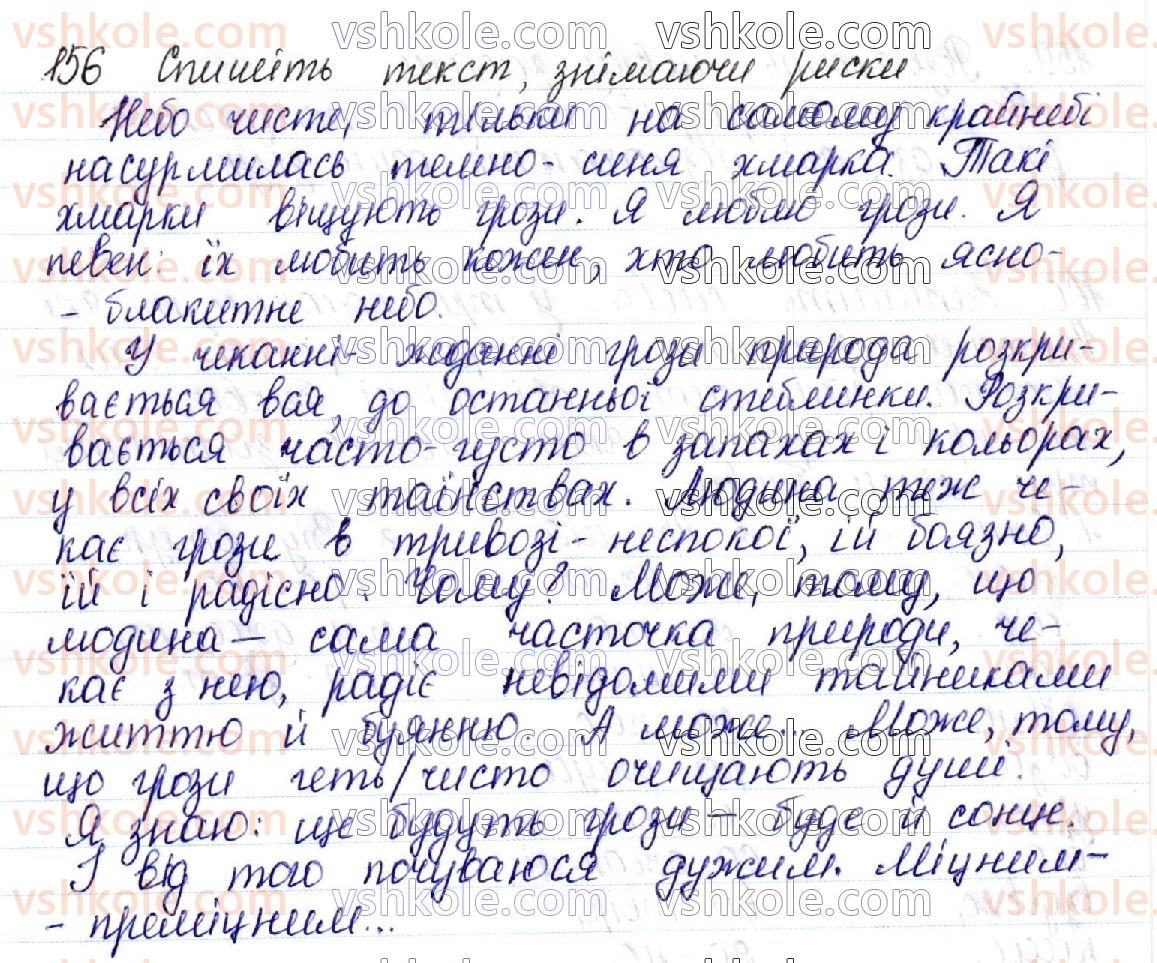 156 Спишіть текст, знімаючи риски
Небо чисте, тільки на самому крайнебі
насурмилась темно-синя хмарка. Такі
хмарки віщують грози. Я люблю грози. Я
певен: їх любить кожен, хто любить ясно-
-блакитне небо.
У чеканні-жаданні грози природа розкри-
вається вся, до останньої стеблинки. Розкри-
вається часто-густо в запахах і кольорах,
у всіх своїх таїнствах. Людина теж че-
кає грози в тривозі-неспокої, їй боязно,
їй і радісно. Чому? Може, тому, що
людина — сама часточка природи, че-
кає з нею, радіє невідомими тайниками
життю й буянню. А може... Може, тому,
що грози геть/чисто очищають душі.
Я знаю: ще будуть грози — буде й сонце.
І від того почуваюся дужим. Міцним-
-преміцним...